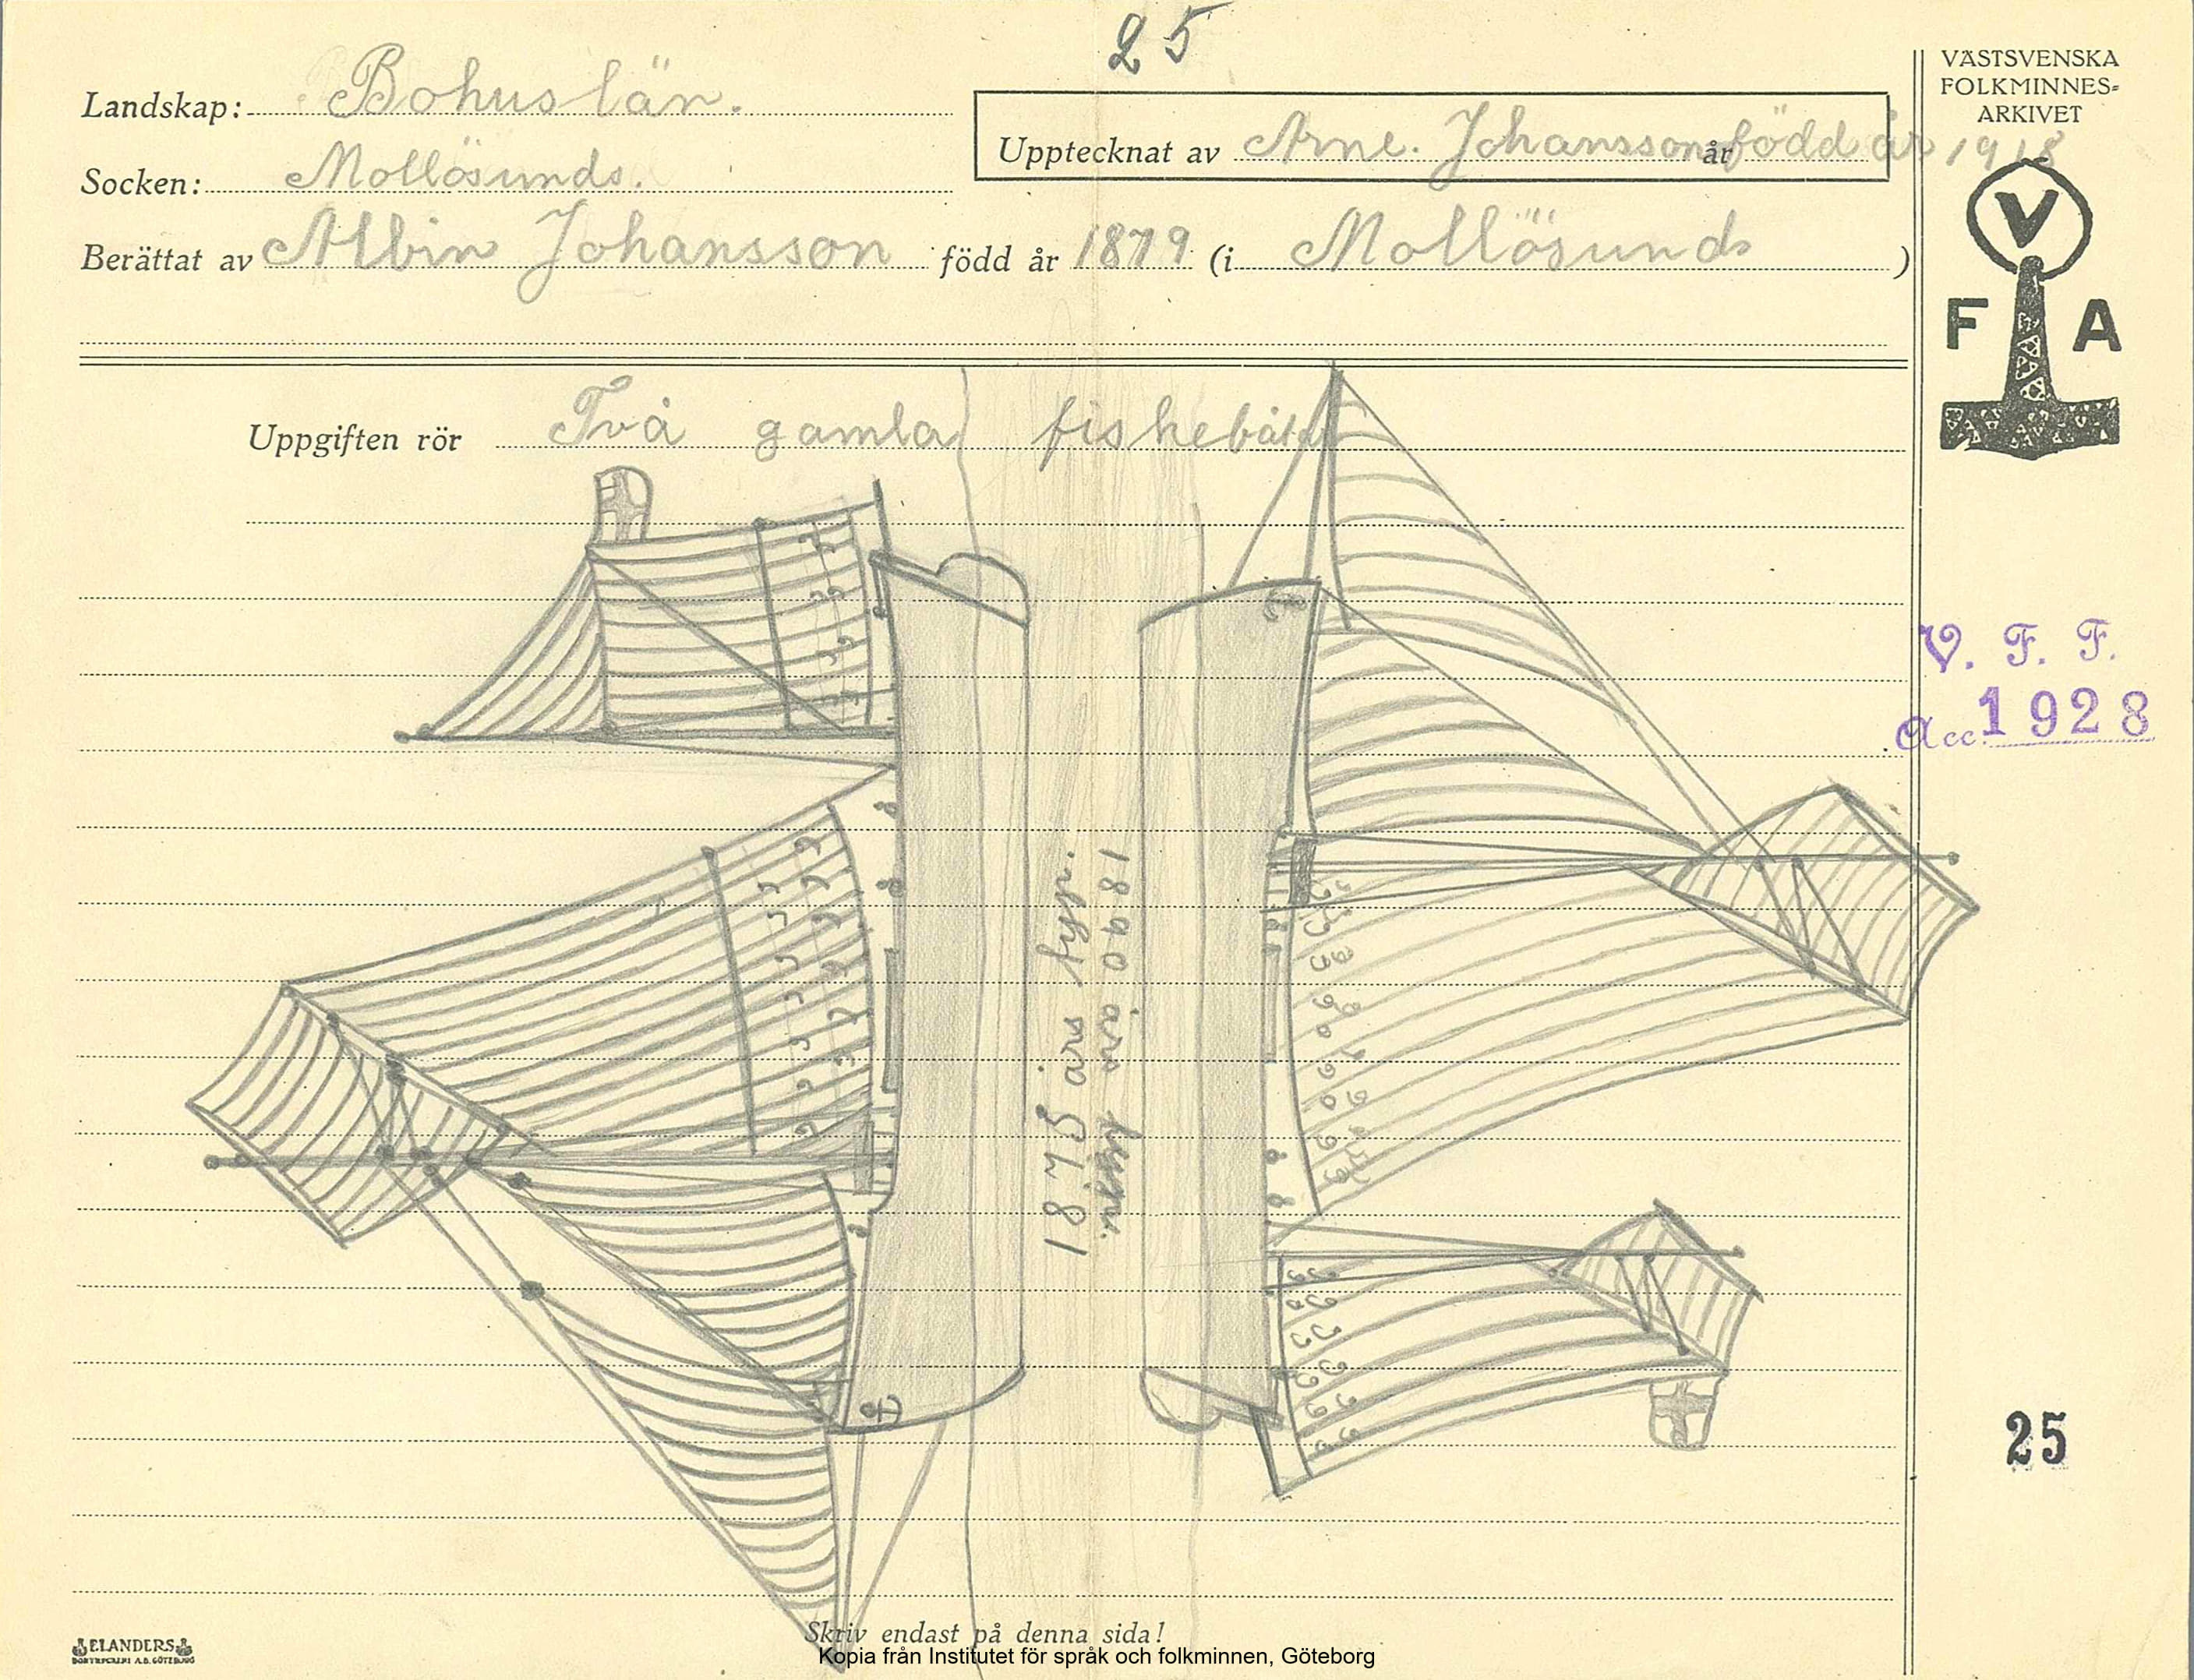 25
VÄSTSVENSKA
FOLKMINNES-
ARKIVET
Landskap: Bohuslän.
Upptecknat av Arne. Johansson år född år 1918
Socken: Mollösunds.
Berättat av Albin Johansson född år 1879 (i Mollösunds )
V
F A
Uppgiften rör Två gamla fiskebåtar
V. F. F.
Acc. 1928
1875 års typ.
1890 års typ.
25
Skriv endast på denna sida!
ELANDERS
BOKTRYCKERI A.B. GÖTEBORG
Kopia från Institutet för språk och folkminnen, Göteborg